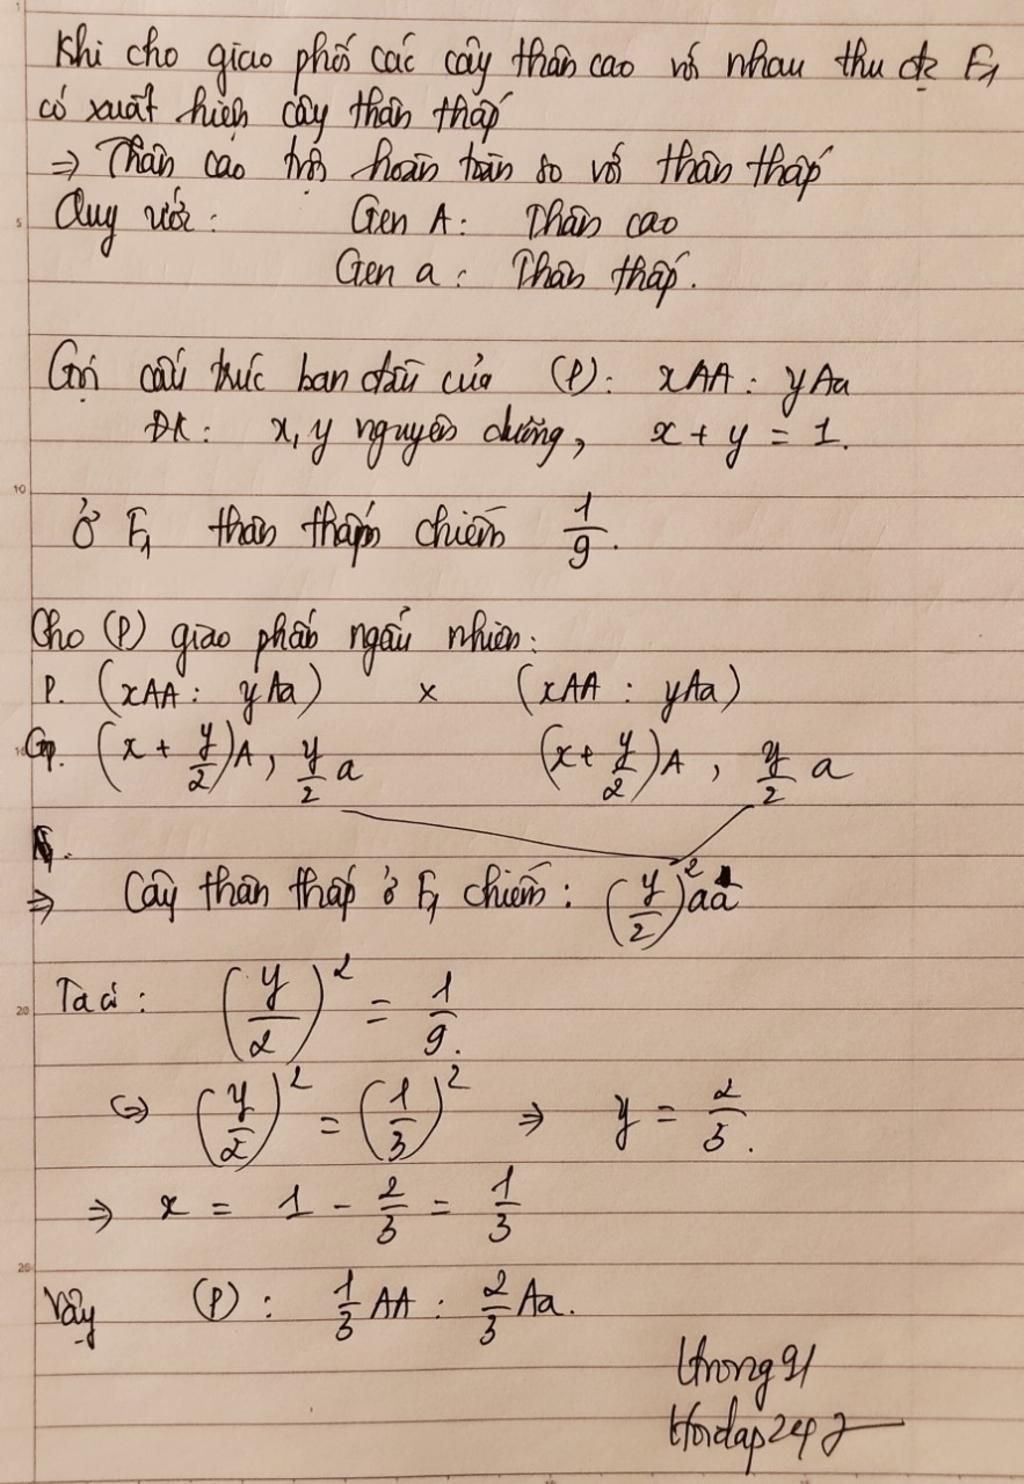 Khi cho giao phối các cây thân cao với nhau thu đc F1
có xuất hiện cây thân thấp
⇒ Thân cao trội hoàn toàn so với thân thấp
Quy ước: Gen A: Thân cao
Gen a: Thân thấp.
Gọi cấu trúc ban đầu của (P): xAA : yAa
ĐK: x, y nguyên dương, x + y = 1.
Ở F1 thân thấp chiếm 1/9.
Cho (P) giao phấn ngẫu nhiên:
P. (xAA : yAa) x (xAA : yAa)
Gp. (x + y/2)A, y/2 a (x + y/2)A, y/2 a
⇒ Cây thân thấp ở F1 chiếm: (y/2)²aa
Ta có: (y/2)² = 1/9.
⇔ (y/2)² = (1/3)² ⇒ y = 2/3.
⇒ x = 1 - 2/3 = 1/3
Vậy (P): 1/3 AA : 2/3 Aa.
Hoidap247